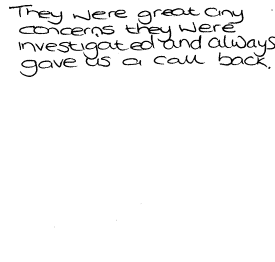 They were great any
concerns they were
investigated and always
gave us a call back.